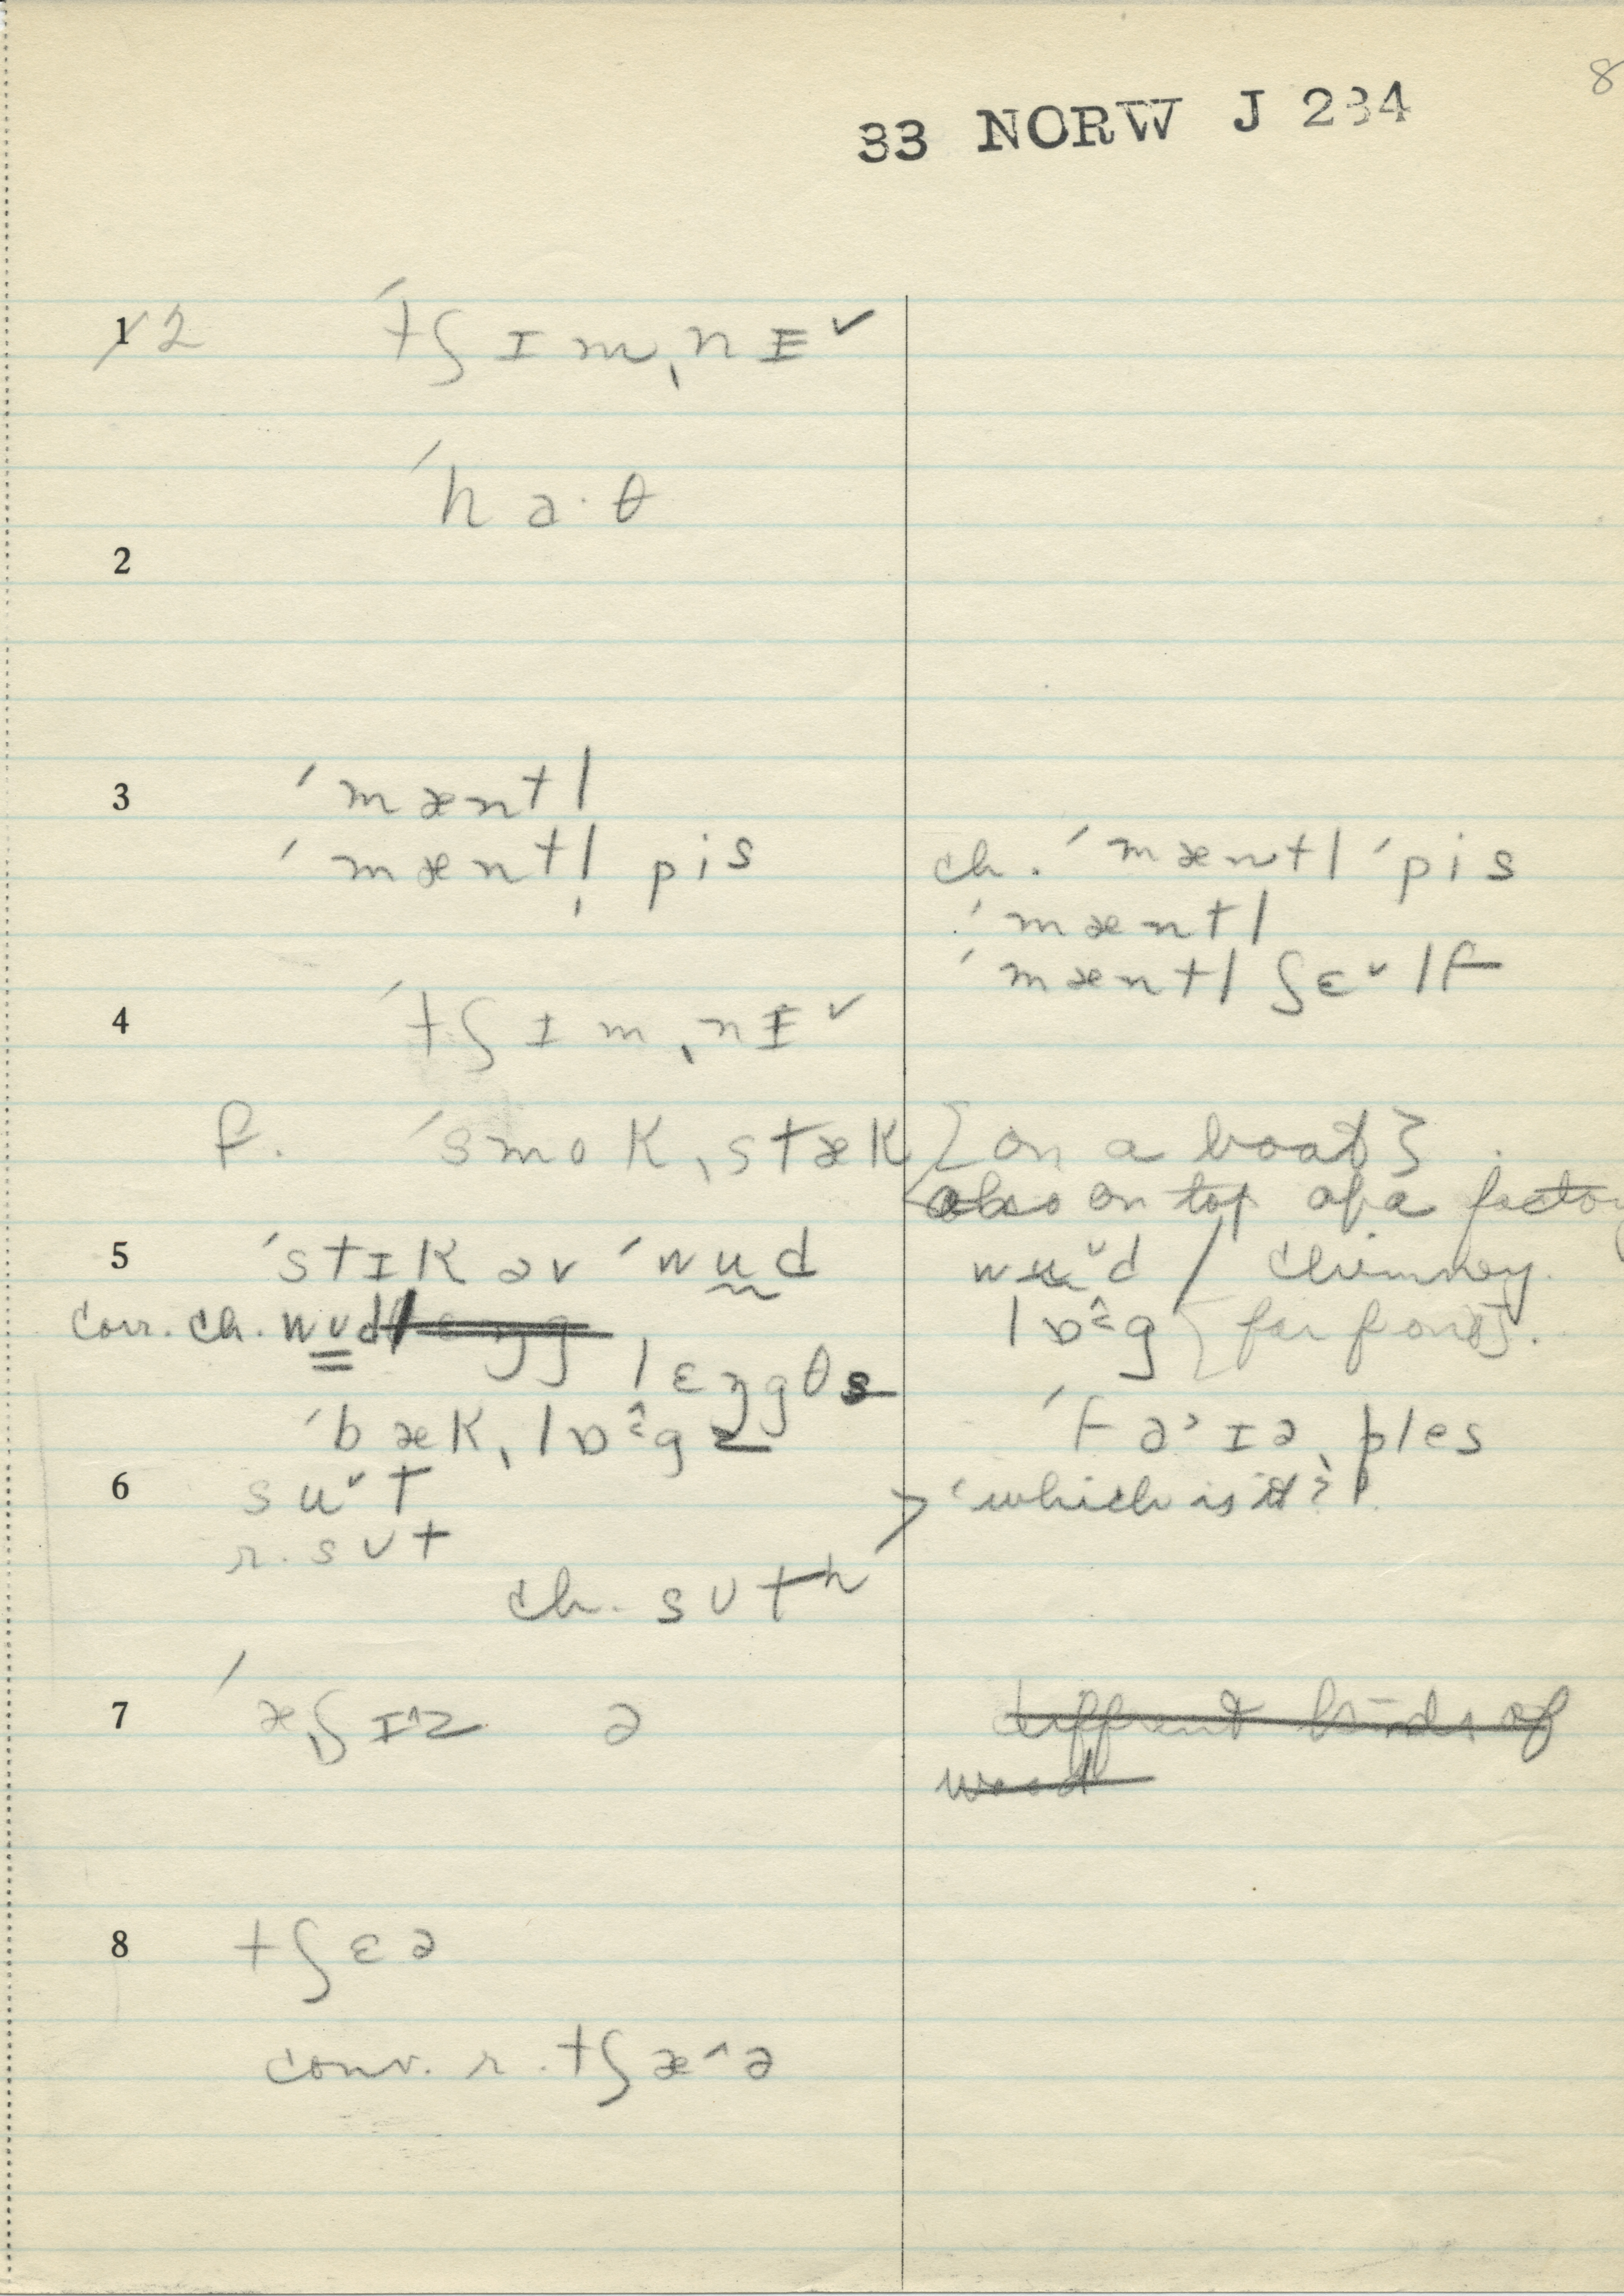 8
33 NORW J 234
1 2 ˈtʃɪmˌnɪ˅
ˈha·θ
2
3 ˈmæntl
ˈmæntl̩ pis
ch. ˈmæntl ˈpis
ˈmæntl
ˈmæntl ʃɛ˅lf
4 ˈtʃɪmˌnɪ˅
f. ˈsmokˌstæk {on a boat}
also on top of a factory
chimney.
5 ˈstɪk əv ˈwud
corr. ch. wʊd
lɛŋgθs
ˈbækˌlɒ̂gz
wu˅d
lɒ̂g {for front}.
ˈfa˃ɪəˌples
6 su˅t
r. sʊt
ch. sʊtʰ
'which is it?'
7 ˈæˌʃɪ^z ə
different kinds of
wood
8 tʃɛə
conv. r. tʃæ^ə